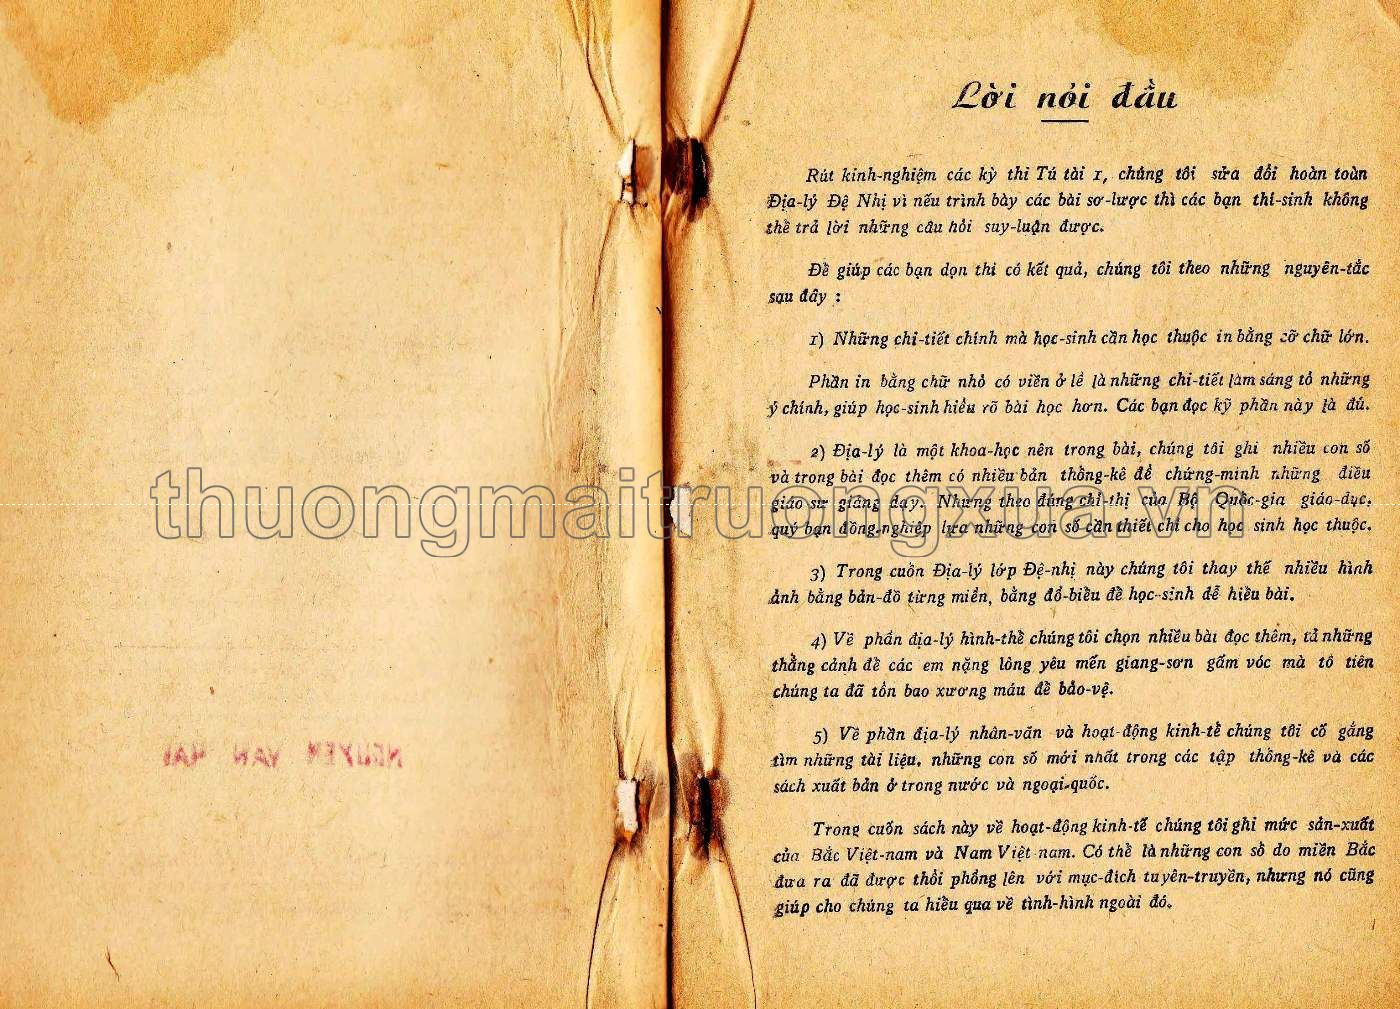 Lời nói đầu
Rút kinh-nghiệm các kỳ thi Tú tài 1, chúng tôi sửa đổi hoàn toàn
Địa-lý Đệ Nhị vì nếu trình bày các bài sơ-lược thì các bạn thí-sinh không
thể trả lời những câu hỏi suy-luận được.
Để giúp các bạn dọn thi có kết quả, chúng tôi theo những nguyên-tắc
sau đây :
1) Những chi-tiết chính mà học-sinh cần học thuộc in bằng cỡ chữ lớn.
Phần in bằng chữ nhỏ có viền ở lề là những chi-tiết làm sáng tỏ những
ý chính, giúp học-sinh hiểu rõ bài học hơn. Các bạn đọc kỹ phần này là đủ.
2) Địa-lý là một khoa-học nên trong bài, chúng tôi ghi nhiều con số
và trong bài đọc thêm có nhiều bản thống-kê để chứng-minh những điều
giáo sư giảng dạy. Nhưng theo đúng chỉ-thị của Bộ Quốc-gia giáo-dục,
quý bạn đồng-nghiệp lựa những con số cần thiết chỉ cho học sinh học thuộc.
thuongmaitruongxua.vn
3) Trong cuốn Địa-lý lớp Đệ-nhị này chúng tôi thay thế nhiều hình
ảnh bằng bản-đồ từng miền, bằng đồ-biểu để học-sinh dễ hiểu bài.
4) Về phần địa-lý hình-thể chúng tôi chọn nhiều bài đọc thêm, tả những
thắng cảnh để các em nặng lòng yêu mến giang-sơn gấm vóc mà tổ tiên
chúng ta đã tốn bao xương máu để bảo-vệ.
5) Về phần địa-lý nhân-văn và hoạt-động kinh-tế chúng tôi cố gắng
tìm những tài liệu, những con số mới nhất trong các tập thống-kê và các
sách xuất bản ở trong nước và ngoại-quốc.
Trong cuốn sách này về hoạt-động kinh-tế chúng tôi ghi mức sản-xuất
của Bắc Việt-nam và Nam Việt nam. Có thể là những con số do miền Bắc
đưa ra đã được thổi phồng lên với mục-đích tuyên-truyền, nhưng nó cũng
giúp cho chúng ta hiểu qua về tình-hình ngoài đó.
NGUYEN VAN HAI